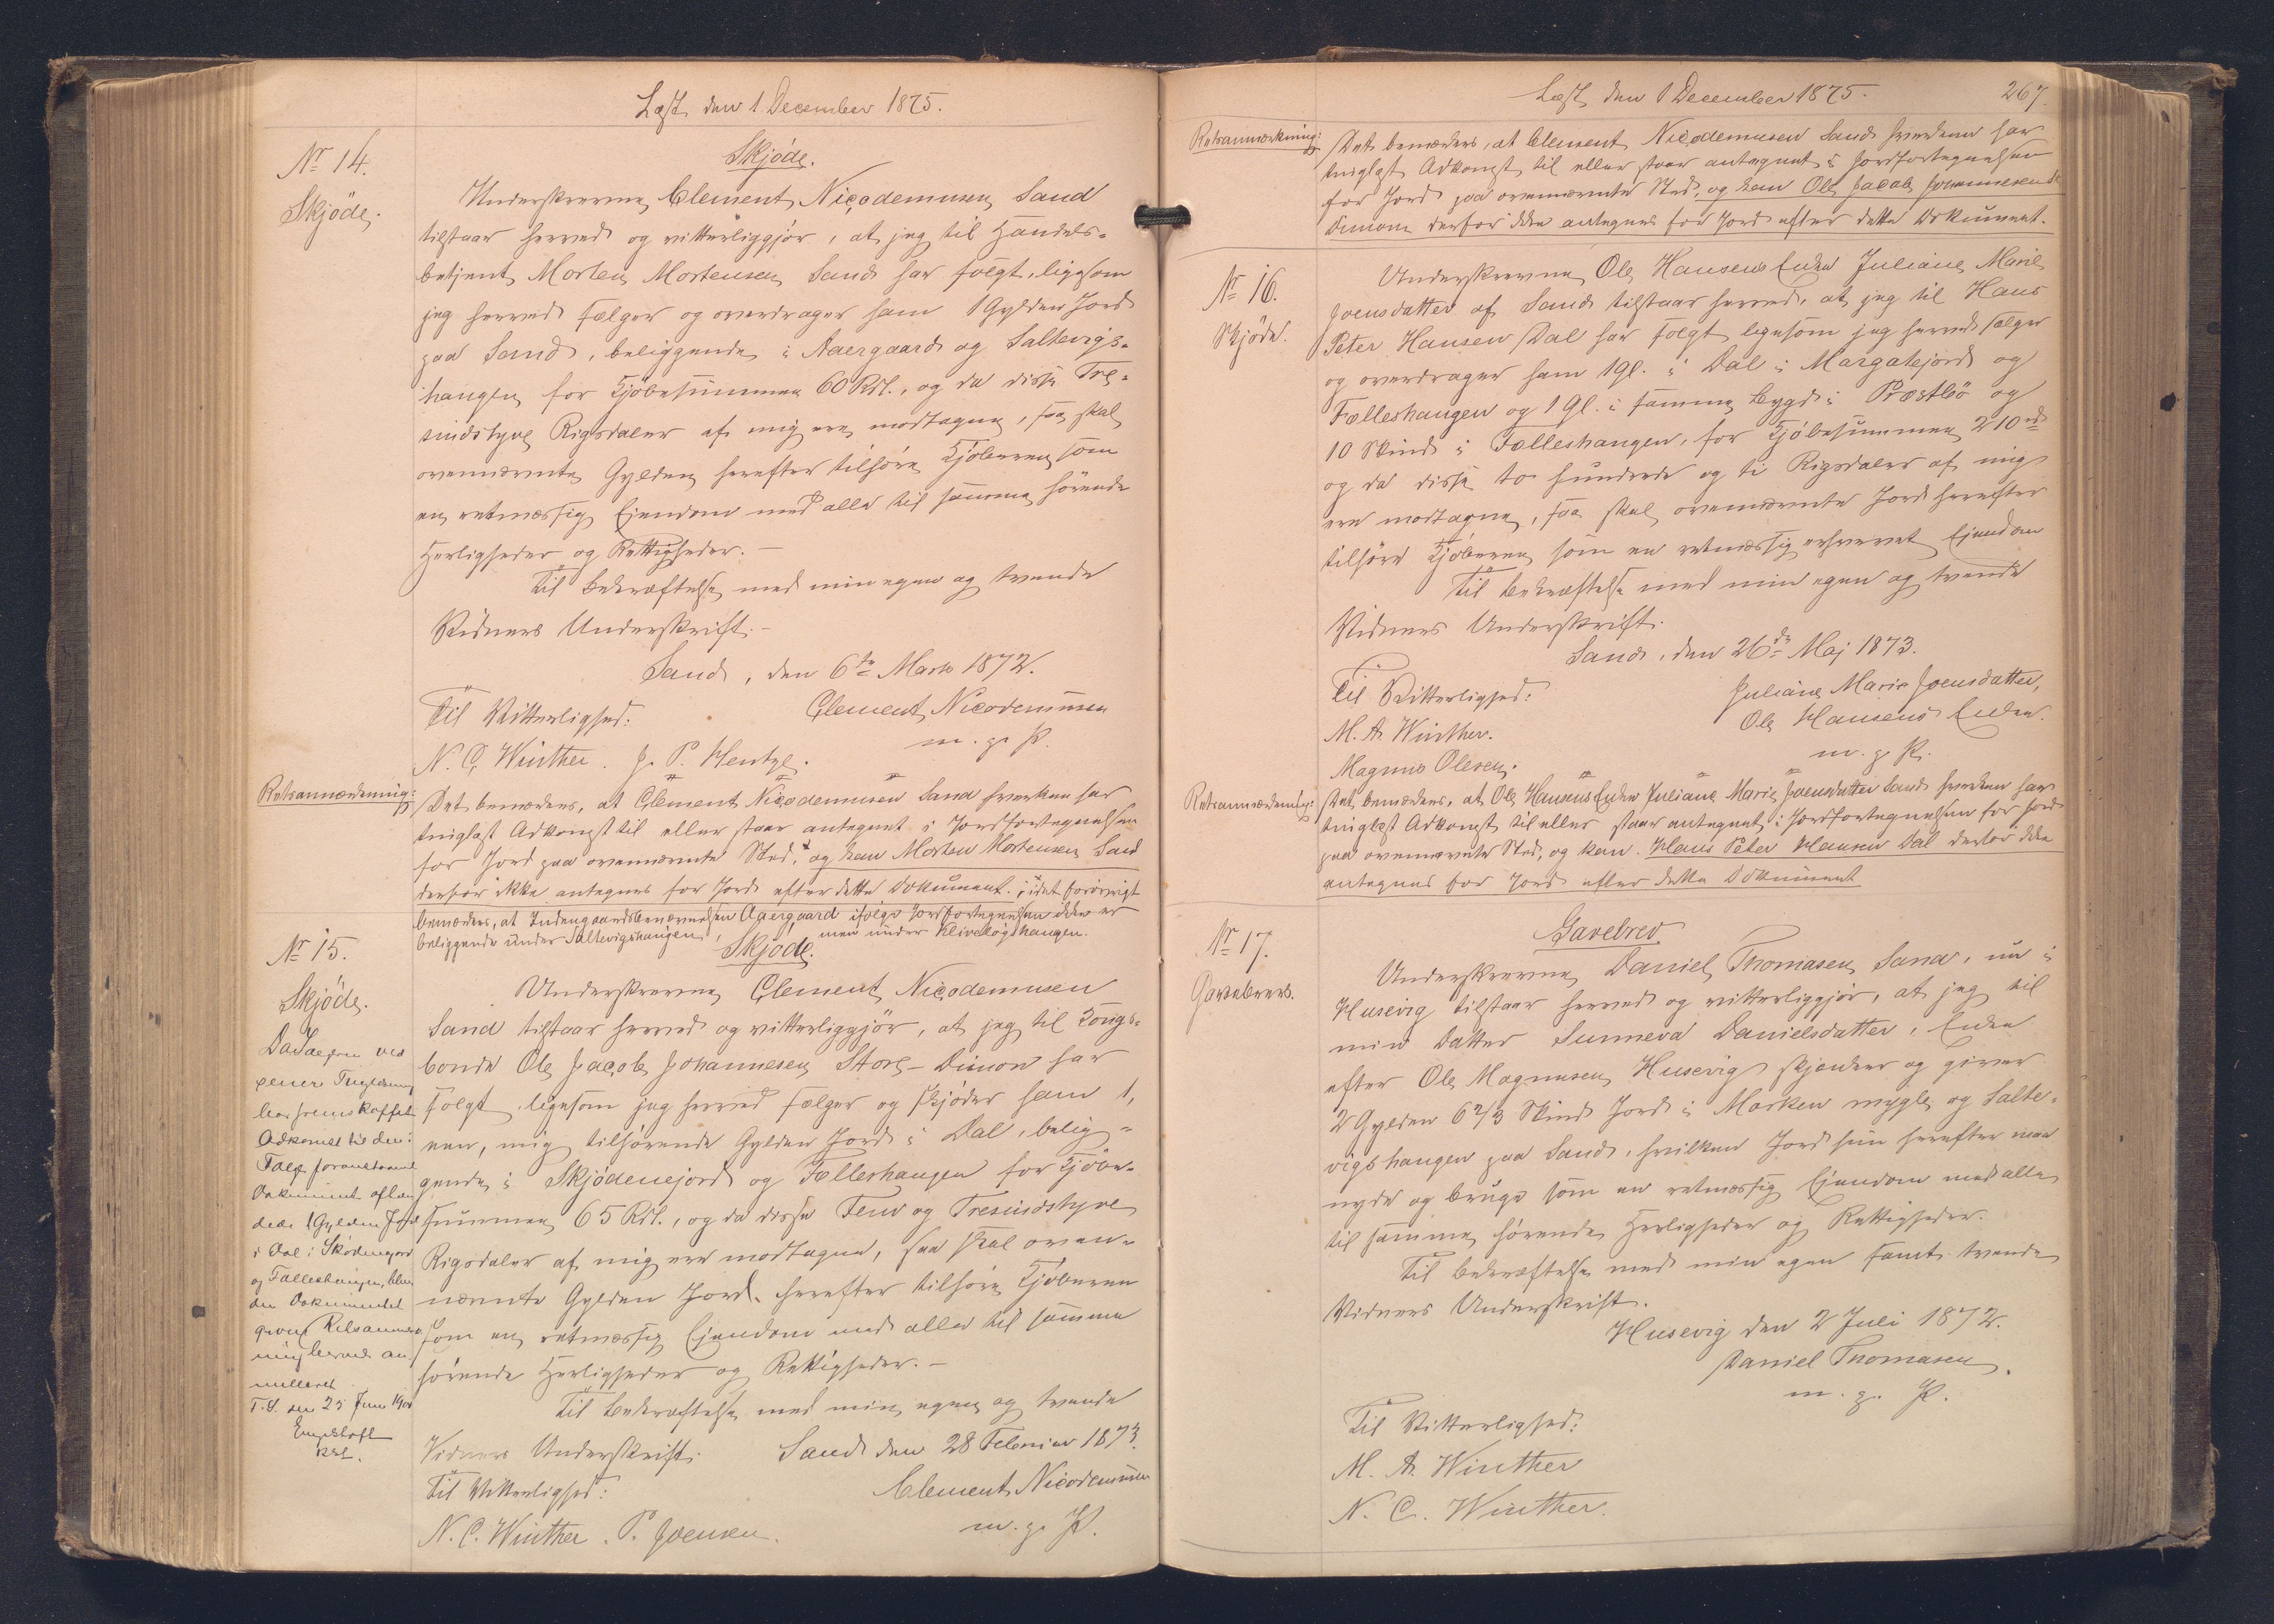 Læst den 1 December 1875.
Nr 14.
Skjöde.
Skjöde.
Underskrevne Clement Nicodemusen Sand
tilstaar herved og vitterliggjör, at jeg til Handels-
betjent Morten Mortensen Sand har solgt, ligesom
jeg herved sælger og overdrager ham 1 Gylden Jord
paa Sand, beliggende i Aaergaard og Saltevigs-
haugen for Kjöbesummen 60 Rdl., og da disse Tre-
sindstyve Rigsdaler af mig ere modtagne, saa skal
ovennævnte Gylden herefter tilhöre Kjöberen som
en retmæssig Ejendom med alle til samme hörende
Herligheder og Rettigheder. -
Til Bekræftelse med min egen og tvende
Vidners Underskrift. -
Sand, den 6te Marts 1872.
Til Vitterlighed:
Clement Nicodemusen
m. p. P.
N. C. Winther. J. P. Hentze.
Retsanmærkning:
Det bemærkes, at Clement Nicodemusen Sand hverken har
tinglæst Adkomst til eller staar antegnet i Jordfortegnelsen
for Jord paa ovennævnte Sted, og kan Morten Mortensen Sand
derfor ikke antegnes for Jord efter dette Dokument; idet forövrigt
bemærkes, at Indengaardsbenævnelsen Aaergaard ifölge Jordfortegnelsen ikke er
beliggende under Saltevigshaugen, men under Kliveløgshaugen.
Nr 15.
Skjöde.
Skjöde.
Underskrevne Clement Nicodemusen
Sand tilstaar herved og vitterliggjör, at jeg til Kongs-
bonde Ole Jacob Johannesen Store-Dimon har
solgt, ligesom jeg herved sælger og skjöder ham 1,
een, mig tilhörende Gylden Jord i Dal, belig-
gende i Skjödenejord og Fælleshaugen for Kjöbe-
summen 65 Rdl., og da disse Fem og Tresindstyve
Rigsdaler af mig ere modtagne, saa skal oven-
nævnte Gylden Jord herefter tilhöre Kjöberen
som en retmæssig Ejendom med alle til samme
hörende Herligheder og Rettigheder. -
Til Bekræftelse med min egen og tvende
Vidners Underskrift. Sand den 28 Februar 1873.
Til Vitterlighed:
Clement Nicodemusen
m. p. P.
N. C. Winther. P. Joensen.
Da Sælgeren ved
senere Tinglæsning
har fremskaffet
Adkomst til den i
Følge foranstaaende
Dokument afhæn
dede 1 Gylden Jord
i Dal i Sködenejord
og Fælleshaugen, bliver
den Dokumentet
givne Retsanmærk
ning herved an
nulleret
T. S. den 25 Juni
Kst.
Læst den 1 December 1875.
267.
Retsanmærkning:
Det bemærkes, at Clement Nicodemusen Sand hverken har
tinglæst Adkomst til eller staar antegnet i Jordfortegnelsen
for Jord paa ovennævnte Sted, og kan Ole Jacob Johannesen St.
Dimon derfor ikke antegnes for Jord efter dette Dokument.
Nr 16.
Skjöde.
Underskrevne Ole Hansens Enke Juliane Marie
Joensdatter af Sand tilstaar herved, at jeg til Hans
Peter Hansen Dal har solgt ligesom jeg herved sælger
og overdrager ham 1 Gl. i Dal i Margatejord og
Fælleshaugen og 1 Gl. i samme Bygd i Præstbö og
10 Skind i Fælleshaugen, for Kjöbesummen 210 rd
og da disse to hundrede og ti Rigsdaler af mig
ere modtagne, saa skal ovennævnte Jord herefter
tilhöre Kjöberen som en retmæssig erhvervet Ejendom
Til Bekræftelse med min egen og tvende
Vidners Underskrift.
Sand, den 26de Maj 1873.
Til Vitterlighed:
Juliane Marie Joensdatter,
Ole Hansens Enke.
m. p. P.
M. A. Winther.
Magnus Olesen.
Retsanmærkning:
Det bemærkes, at Ole Hansens Enke Juliane Marie Joensdatter Sand hverken har
tinglæst Adkomst til eller staar antegnet i Jordfortegnelsen for Jord
paa ovennævnte Sted, og kan Hans Peter Hansen Dal derfor ikke
antegnes for Jord efter dette Dokument
Nr 17.
Gavebrev.
Gavebrev.
Underskrevne Daniel Thomasen Sand, nu i
Husevig tilstaar herved og vitterliggjör, at jeg til
min Datter Sunneva Danielsdatter, Enke
efter Ole Magnusen Husevig skjænker og giver
2 Gylden 6 2/3 Skind Jord i Marken mygle og Salte-
vigshaugen paa Sand, hvilken Jord hun herefter maa
nyde og bruge som en retmæssig Ejendom med alle
til samme hörende Herligheder og Rettigheder.
Til Bekræftelse med min egen samt tvende
Vidners Underskrift.
Husevig den 2 Juli 1872.
Daniel Thomasen
m. p. P.
Til Vitterlighed:
M. A. Winther
N. C. Winther.